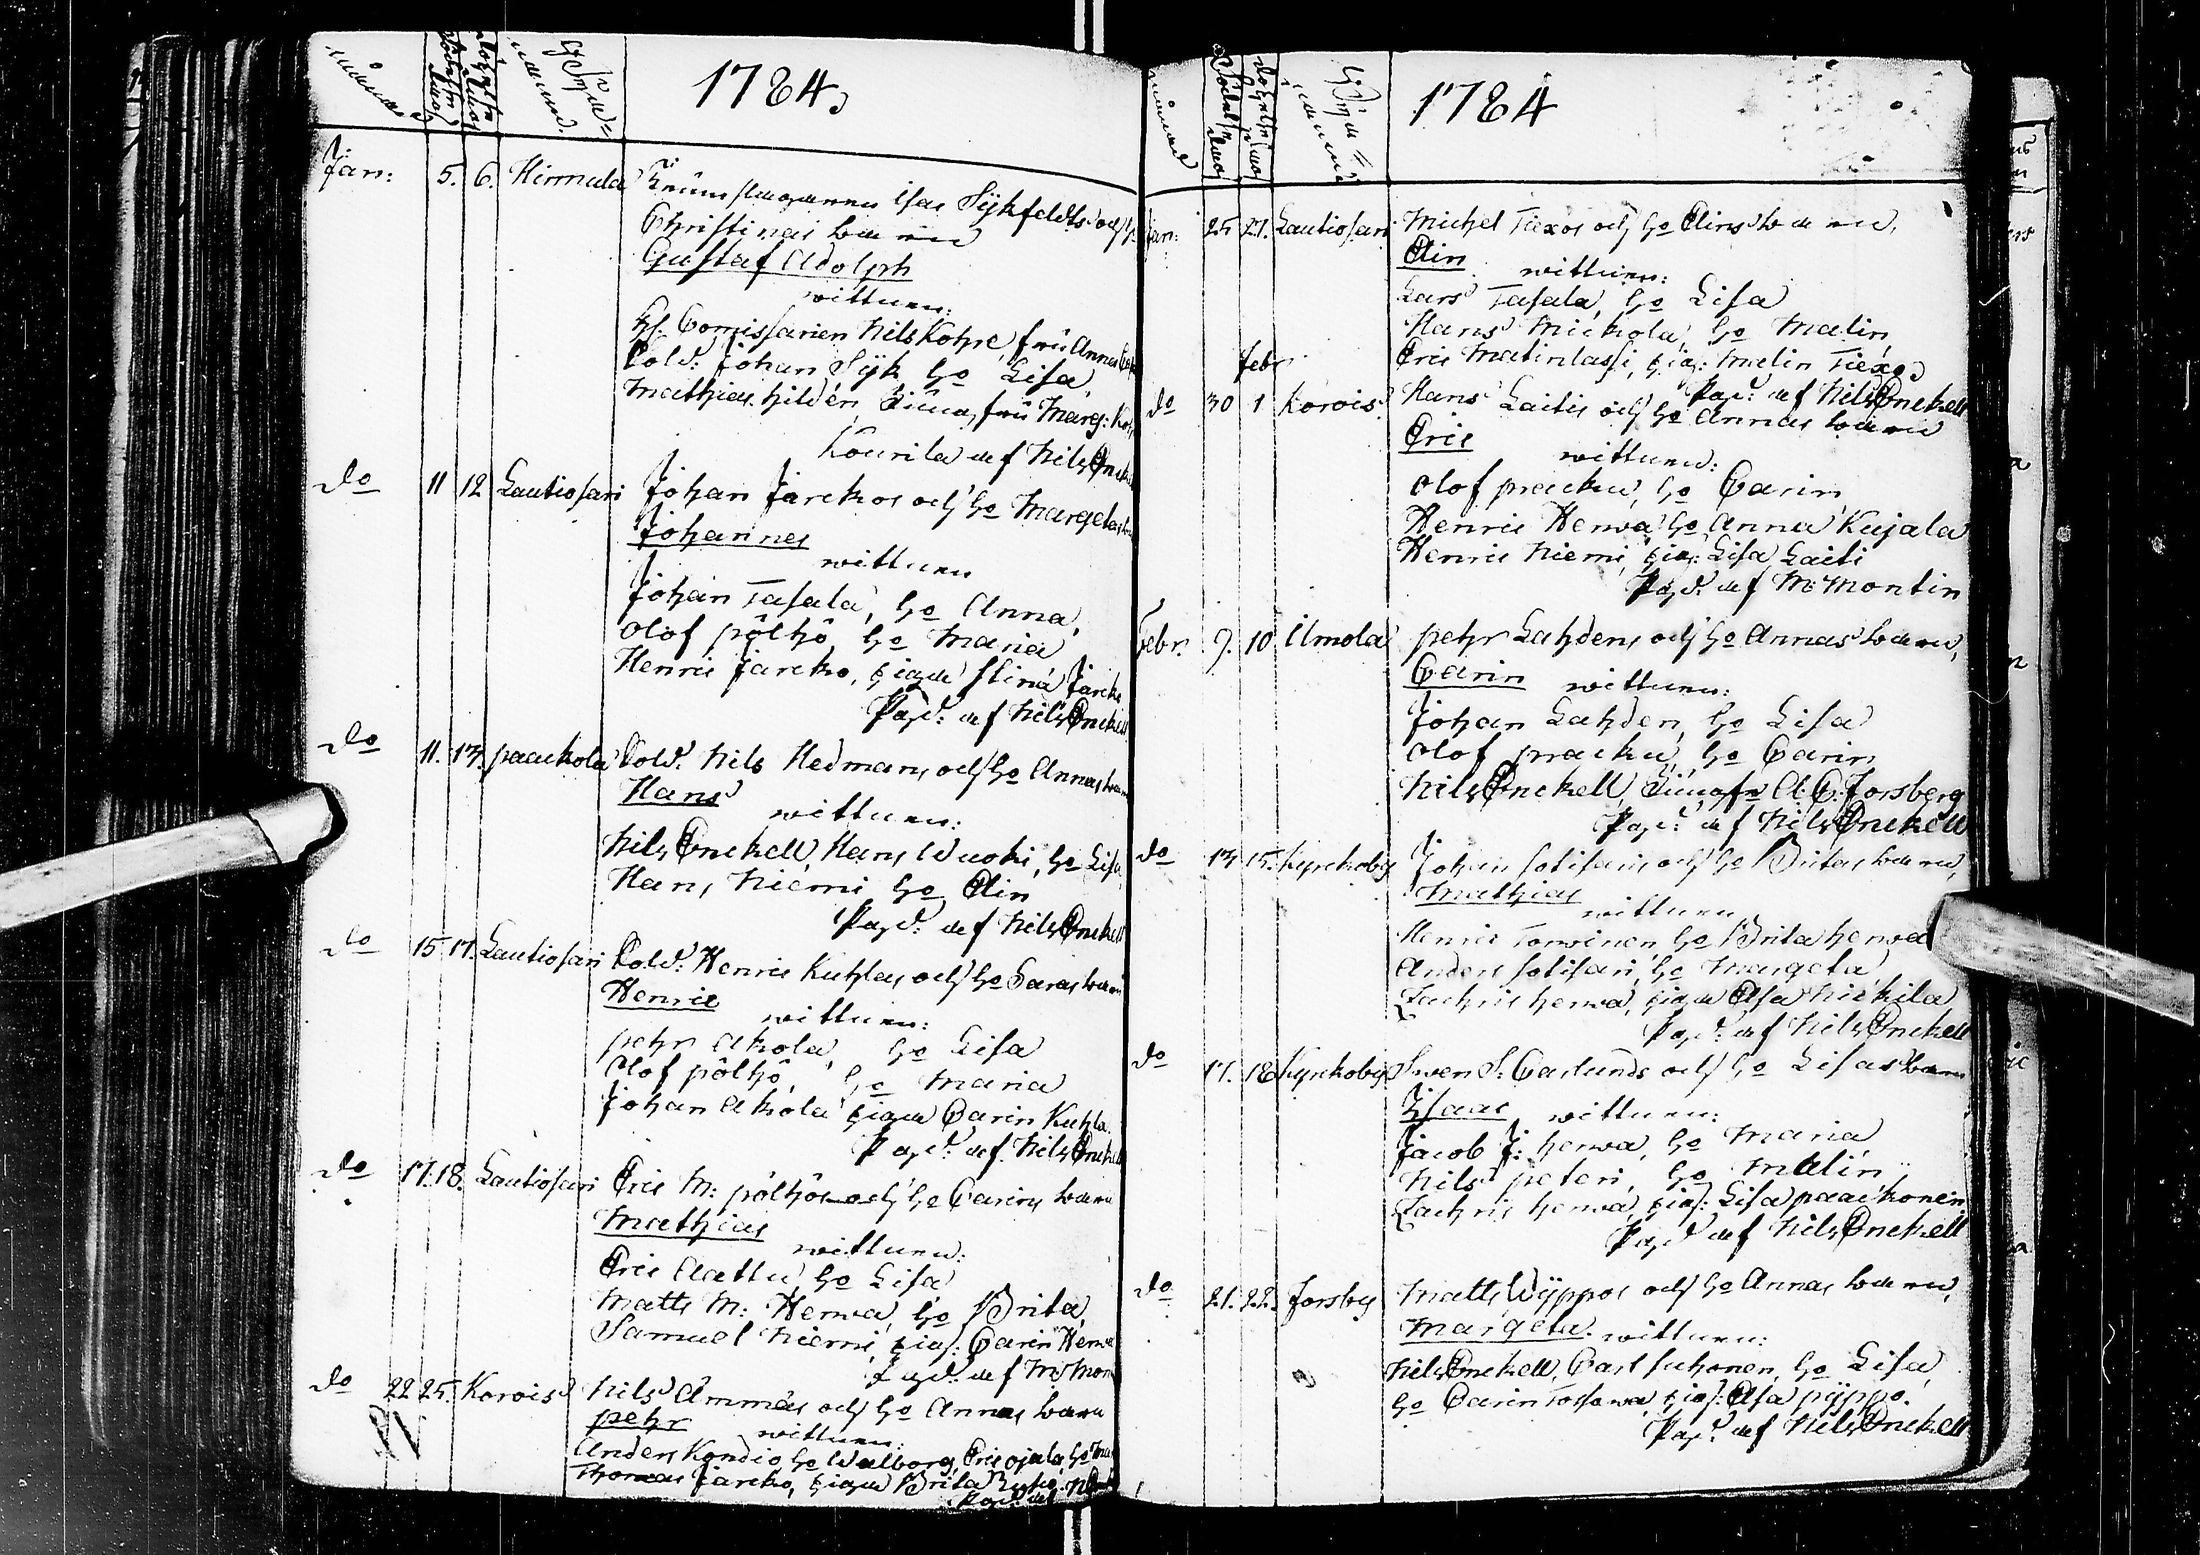 månad
Födelse
Döpelse
Hemman
1784,
Jan: 5. 6. Hirmula Isac Sÿkfeldts och
Christinas barn
Gustaf Adolph
wittnen:
Comissarien Nils Kohre, fru Anna
Sold: Johan Sÿk ho Lisa
Mathias hildén, fru Marg:
Kourila af Nils Enckell
do 11 12 Lautiosari Johan Jarckos och ho Margetas
Johannes
wittnen
Johan Tasala, ho Anna,
Olof pôlhô ho Maria
Henric Jarcko, piga Stina Jarcko
Pagd: af Nils Enckell
do 11. 13. paackola Sold: Nils Hedmans och ho Annas barn
Hans
wittnen:
Nils Enckell, Hans Wuoki, ho Lisa
Hans Niemi ho Elin
Pagd: af Nils Enckell
do 15 17. Lautiosari Sold: Henric Kuhlas och ho Saras barn
Henric
wittnen:
pehr Akola, ho Lisa
Olof pôlhô, ho Maria
Johan Akola piga Carin Kuhla.
Pagd: af Nils Enckell
do 17. 18. Lautiosari Eric M: pôlhôs och ho Carins barn
Mathias
wittnen:
Eric Aattu, ho Lisa
Matts M: Herwa, ho Brita,
Samuel Niemi, pig: Carin Herwa
Pagd: af M: Mon
do 22 25. Korois Nils Ämmäs och ho Annas barn
pehr
wittnen:
Anders Kondio ho Walborg, Eric ojala, ho
Thomas Jarcko, piga Brita
Pagd: af
månad
Födelse
Döpelse
Hemman
1784
Jan: 25 27. Lautiosari Michel Tiexos och ho Elins barn,
Elin
wittnen:
Lars Tasala, ho Lisa
Hans Mickola, ho Malin
Eric Matinlassi, pig: Malin Tiexo,
Pagd: af Nils Enckell
febr
do 30 1 Korois Hans Laitis och ho Annas barn
Eric
wittnen:
Olof pracku, ho Carin
Henric Herwa ho Anna Kujala
Henric Niemi, pig: Lisa Laiti
Pagd: af M: Montin
Febr. 9. 10 Ilmola pehr Lahdens och ho Annas barn,
Carin
wittnen:
Johan Lahden, ho Lisa
Olof pracku, ho Carin
Nils Enckell, A: C: Forsberg
Pagd: af Nils Enckell
do 13 15. Kyrckoby Johan sotisaris och ho Britas barn,
Mathias
wittnen
Henric Torvinen, ho Brita herwa
Anders sotisari, ho Margeta
Zachris herwa, piga Elsa Nickila
Pagd: af Nils Enckell
do 17. 18 Kyrckoby Swen S: Caslunds och ho Lisas barn
Isaac
wittnen:
Jacob J: herwa, ho Maria
Nils peteri, ho Malin
Zachris herwa, pig: Lisa paackonen
Pagd af Nils Enckell
do 21. 22. Forsby Matts Wÿppos och ho Annas barn,
Margeta.
wittnen:
Nils Enckell, Carl suhonen, ho Lisa,
ho Carin Tossawa, pig: Elsa pÿppo.
Pagd: af Nils Enckell